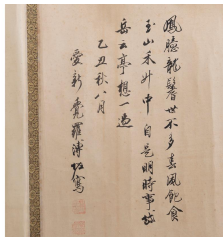 鳳臆龍鬐世不多春風飽食
玉山禾卅中自是明時事
岳云亭想一過
乙丑秋八月
愛新覺羅溥佐寫